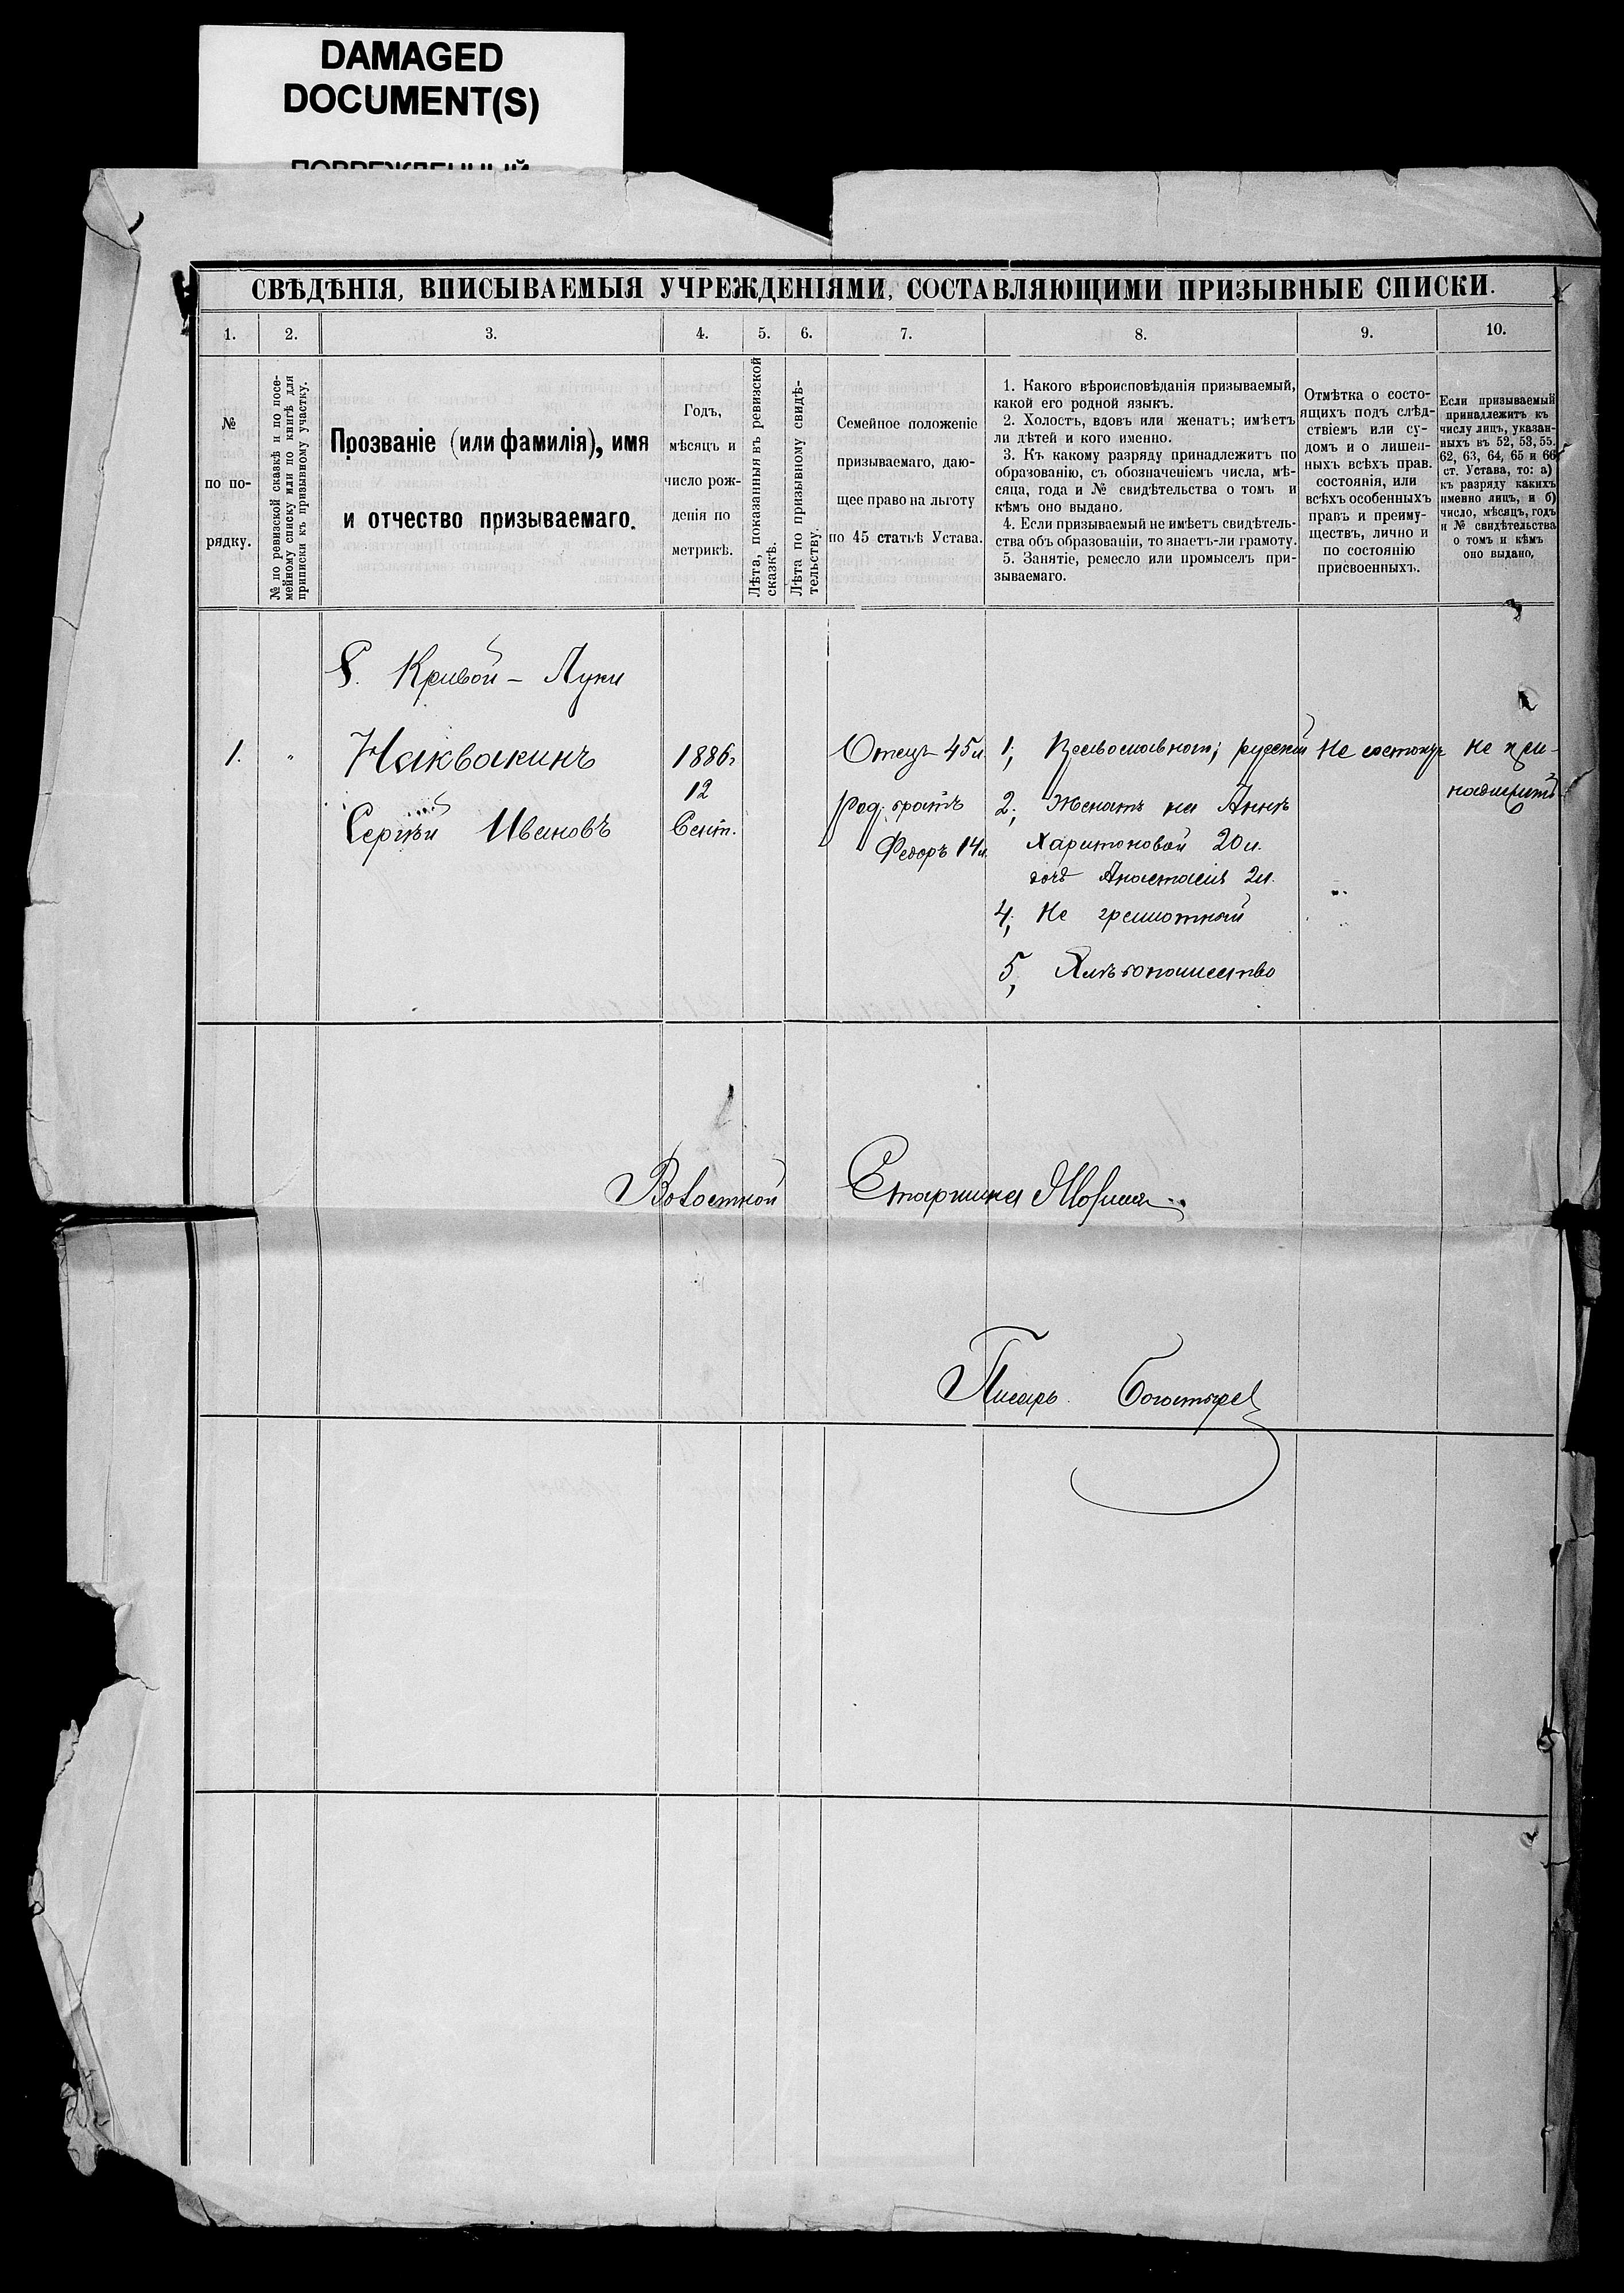 DAMAGED
DOCUMENT(S)
ПОВРЕЖДЕННЫЙ
СВѢДѢНІЯ, ВПИСЫВАЕМЫЯ УЧРЕЖДЕНІЯМИ, СОСТАВЛЯЮЩИМИ ПРИЗЫВНЫЕ СПИСКИ.
1. 2. 3. 4. 5. 6. 7. 8. 9. 10.
№
по по-
рядку.
№ по ревизской сказкѣ и по посе-
мейному списку или по книгѣ для
приписки къ призывному участку.
Прозваніе (или фамилія), имя
и отчество призываемаго.
Годъ,
мѣсяцъ и
число рож-
денія по
метрикѣ.
Лѣта, показанныя въ ревизской
сказкѣ.
Лѣта по призывному свидѣ-
тельству.
Семейное положеніе
призываемаго, даю-
щее право на льготу
по 45 статьѣ Устава.
1. Какого вѣроисповѣданія призываемый,
какой его родной языкъ.
2. Холостъ, вдовъ или женатъ; имѣетъ
ли дѣтей и кого именно.
3. Къ какому разряду принадлежитъ по
образованію, съ обозначеніемъ числа, мѣ-
сяца, года и № свидѣтельства о томъ и
кѣмъ оно выдано.
4. Если призываемый не имѣетъ свидѣтель-
ства объ образованіи, то знаетъ-ли грамоту.
5. Занятіе, ремесло или промыселъ при-
зываемаго.
Отмѣтка о состо-
ящихъ подъ слѣд-
ствіемъ или су-
домъ и о лишен-
ныхъ всѣхъ прав.
состоянія, или
всѣхъ особенныхъ
правъ и преиму-
ществъ, лично и
по состоянію
присвоенныхъ.
Если призываемый
принадлежитъ къ
числу лицъ, указан-
ныхъ въ 52, 53, 55,
62, 63, 64, 65 и 66
ст. Устава, то: а)
къ разряду какихъ
именно лицъ, и б)
число, мѣсяцъ, годъ
и № свидѣтельства
о томъ и кѣмъ
оно выдано,
С. Кривой-Луки
1. " Наквакинъ
Сергѣй Ивановъ
1886г
12
Сент.
Отецъ 45л.
род. братъ
Федоръ 14л.
1; Православный; русский
2; Женатъ на Аннѣ
Харитоновой 20л.
дочь Анастасія 2л.
4; Не грамотный
5; Хлѣбопашество
Не состоитъ
Не при-
надлежитъ
Волостной Старшина
Писарь Богатырев